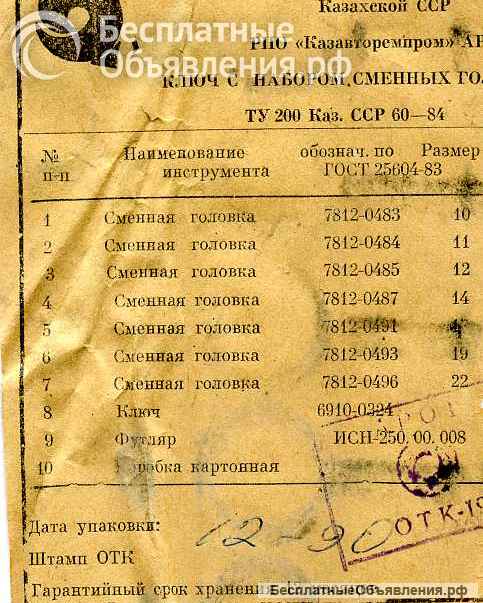 Бесплатные
Объявления.рф
Казахской ССР
РПО «Казавторемпром»
КЛЮЧ С НАБОРОМ СМЕННЫХ ГО
ТУ 200 Каз. ССР 60—84
№ п-п Наименование инструмента обознач. по ГОСТ 25604-83 Размер
1 Сменная головка 7812-0483 10
2 Сменная головка 7812-0484 11
3 Сменная головка 7812-0485 12
4 Сменная головка 7812-0487 14
5 Сменная головка 7812-0491
6 Сменная головка 7812-0493 19
7 Сменная головка 7812-0496 22
8 Ключ 6910-0324
9 Футляр ИСН-250.00.008
10 Коробка картонная
Дата упаковки: 12-90
Штамп ОТК
ОТК-19
Гарантийный срок хранения
БесплатныеОбъявления.рф